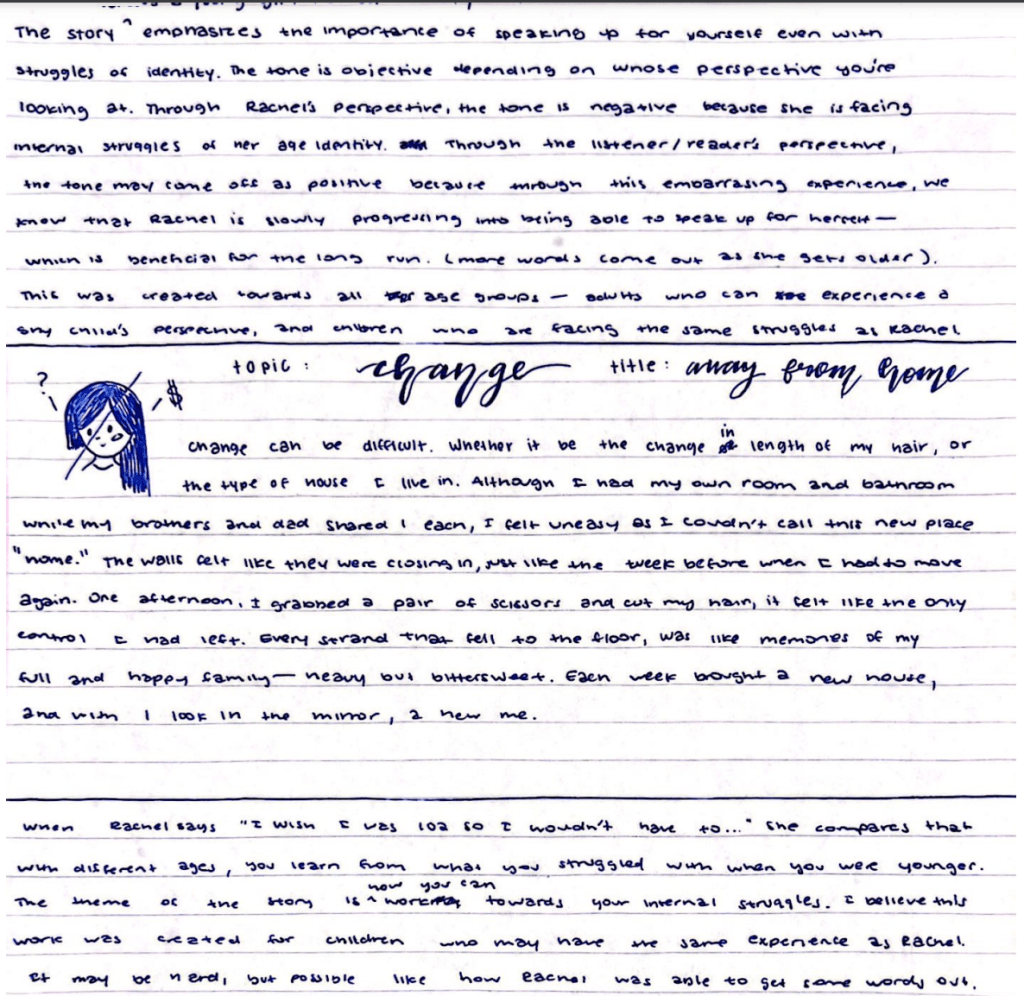 The story ^ emphasizes the importance of speaking up for yourself even with
struggles of identity. The tone is objective depending on whose perspective you're
looking at. Through Rachel's perspective, the tone is negative because she is facing
internal struggles of her age identity. Through the listener/reader's perspective,
the tone may come off as positive because through this embarrasing experience, we
know that Rachel is slowly progressing into being able to speak up for herself —
which is beneficial for the long run. (more words come out as she gets older).
This was created towards all age groups — adults who can experience a
shy child's perspective, and children who are facing the same struggles as Rachel.
topic: change title: away from home
? $
Change can be difficult. Whether it be the change in length of my hair, or
the type of house I live in. Although I had my own room and bathroom
while my brothers and dad shared 1 each, I felt uneasy as I couldn't call this new place
"home." The walls felt like they were closing in, just like the week before when I had to move
again. One afternoon, I grabbed a pair of scissors and cut my hair, it felt like the only
control I had left. Every strand that fell to the floor, was like memories of my
full and happy family — heavy but bittersweet. Each week bought a new house,
and with 1 look in the mirror, a new me.
When Rachel says "I wish I was 102 so I wouldn't have to..." She compares that
with different ages, you learn from what you struggled with when you were younger.
The theme of the story is ^ how you can work towards your internal struggles. I believe this
work was created for children who may have the same experience as Rachel.
It may be hard, but possible like how Rachel was able to get some words out.